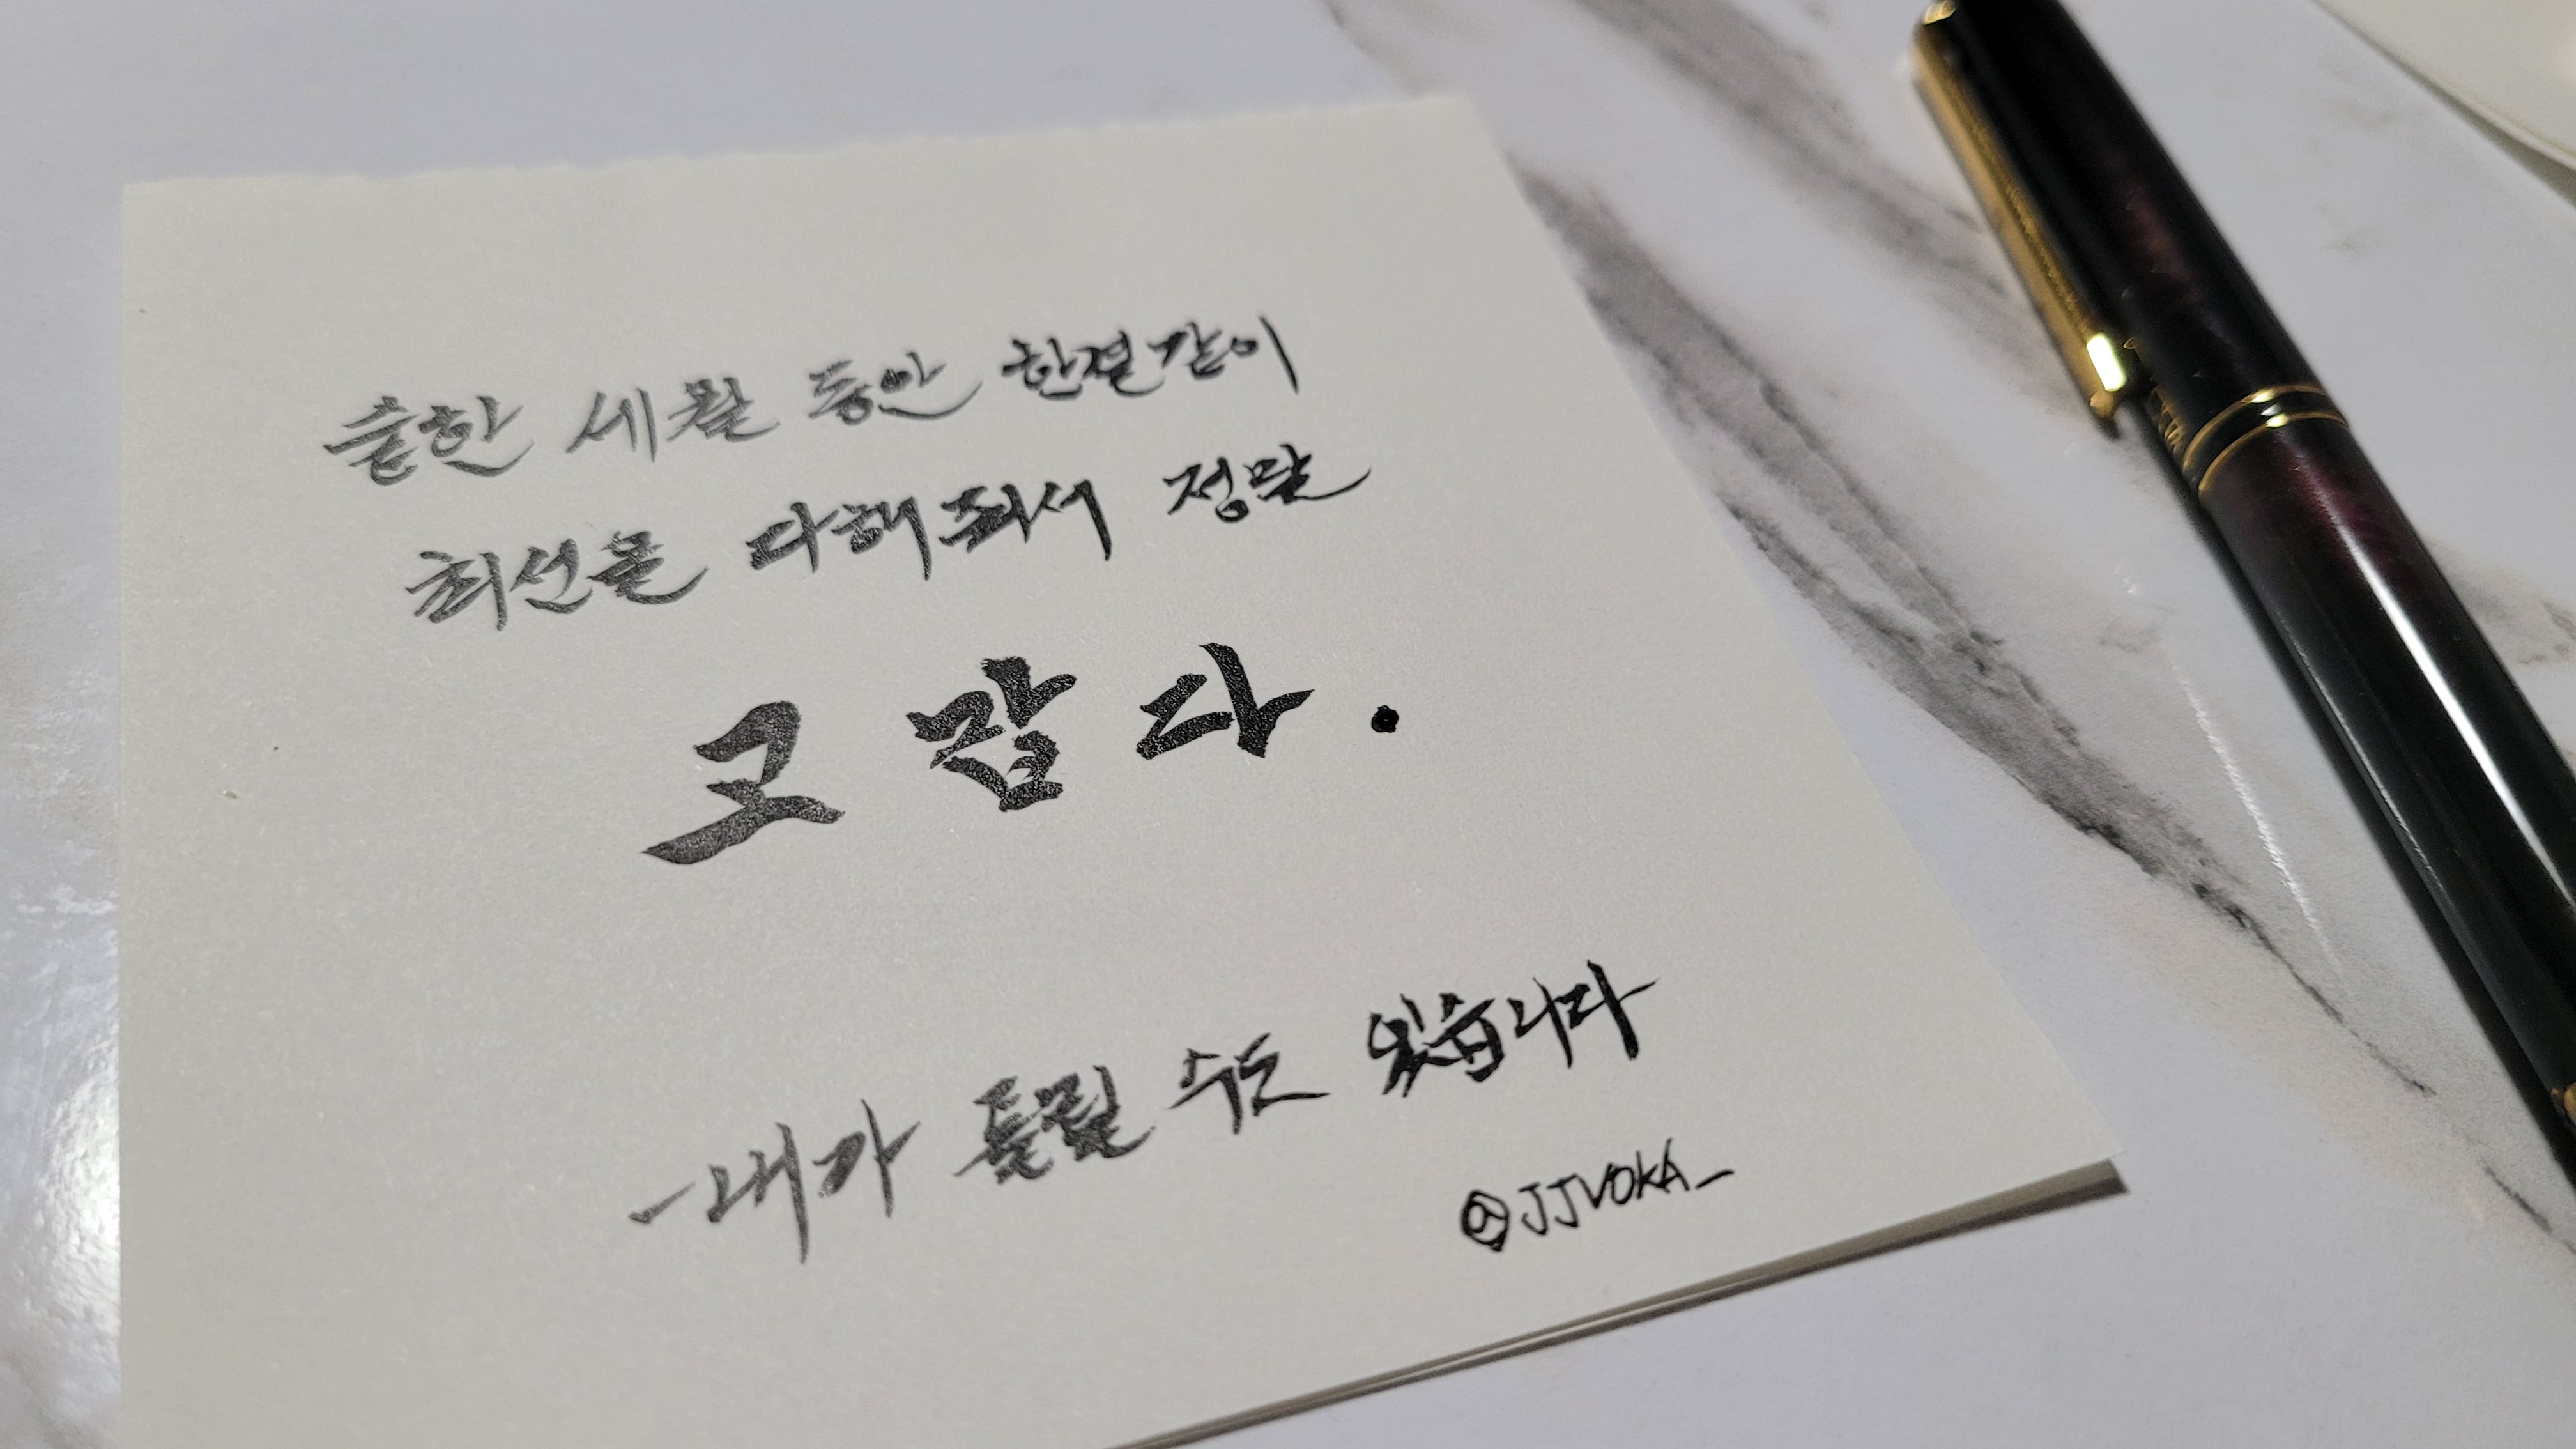 숱한 세월 동안 한결같이
최선을 다해줘서 정말
고맙다.
-내가 틀릴 수도 있습니다
@JJVOKA_